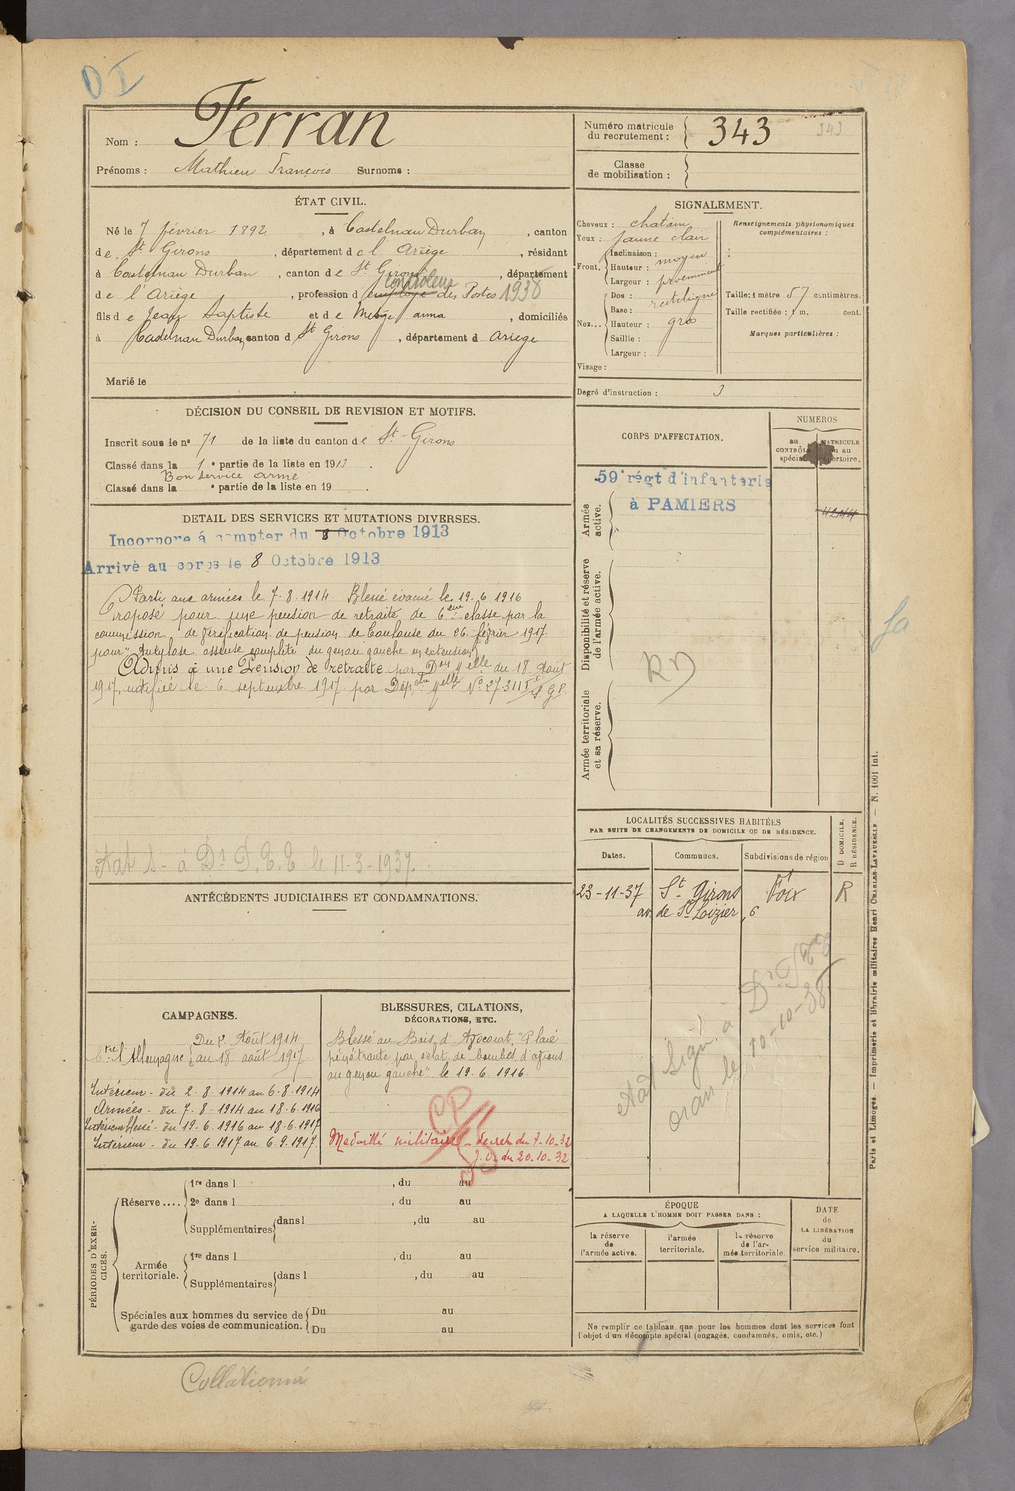 Ferran
Nom :
Prénoms : Mathieu François Surnoms :
Numéro matricule du recrutement : 343
343
Classe de mobilisation :
ÉTAT CIVIL.
Né le 7 février 1892, à Castelnau Durban, canton
de St Girons, département de l'Ariège, résidant
à Castelnau Durban, canton de St Girons, département
contrôleur
de l'Ariège, profession d employé des Postes 1938
fils de Jean Baptiste et de anna, domiciliés
à Castelnau Durban, canton d St Girons, département d Ariège
Marié le
SIGNALEMENT.
Cheveux : chatain
Yeux : jaune clair
Front. Inclinaison : moyen
Hauteur :
Largeur : proéminent
Nez... Dos : rectiligne
Base :
Hauteur : gros
Saillie :
Largeur :
Visage :
Renseignements physionomiques complémentaires :
Taille : 1 mètre 57 centimètres.
Taille rectifiée : 1 m. cent.
Marques particulières :
Degré d'instruction : 3
DÉCISION DU CONSEIL DE REVISION ET MOTIFS.
Inscrit sous le n° 71 de la liste du canton de St-Girons
Classé dans la 1e partie de la liste en 1913.
Bon service armé
Classé dans la e partie de la liste en 19
CORPS D'AFFECTATION.
NUMÉROS
au contrôle spécial
matricule au répertoire.
59e régt d'infanterie
à PAMIERS
Armée active.
Disponibilité et réserve de l'armée active.
RD
Armée territoriale et sa réserve.
DETAIL DES SERVICES ET MUTATIONS DIVERSES.
Incorporé à compter du 8 Octobre 1913
Arrivé au corps le 8 Octobre 1913
Parti aux armées le 7-8-1914 Blessé évacué le 19-6 1916
Proposé pour une pension de retraite de 6eme classe par la
commission de vérification de pension de Toulouse du 26 février 1917
pour "Ankylose osseuse complète du genou gauche en extension"
Admis à une Pension de retraite par Don Melle du 18 Août
1917, notifiée le 6 septembre 1917 par Dépche Melle N° 27311
le 11-3-1937.
LOCALITÉS SUCCESSIVES HABITÉES
PAR SUITE DE CHANGEMENTS DE DOMICILE OU DE RÉSIDENCE.
Dates. Communes. Subdivisions de région D DOMICILE. R RÉSIDENCE.
23-11-37 St Girons Foix R
av. de St Loizier, 6
oran le 10-10-38
ANTÉCÉDENTS JUDICIAIRES ET CONDAMNATIONS.
CAMPAGNES.
Du 2 Août 1914
Ctre l'Allemagne au 18 août 1917
Intérieur - du 2-8-1914 au 6-8-1914
Armées - du 7-8-1914 au 18-6-1916
Intérieur blessé - du 19-6-1916 au 18-6-1917
Intérieur - du 19-6-1917 au 6-9-1917
BLESSURES, CITATIONS,
DÉCORATIONS, ETC.
Blessé au Bois d'Avocourt, "Plaie
pénétrante par éclat de bombes d'avions
au genou gauche" le 19-6-1916
CP
Médaillé militaire - décret du 7-10-32
J.O. du 20-10-32
PÉRIODES D'EXERCICES.
Réserve.... 1re dans l , du au
2e dans l , du au
Supplémentaires dans l , du au
Armée territoriale. 1re dans l , du au
Supplémentaires dans l , du au
Spéciales aux hommes du service de garde des voies de communication. Du au
Du au
ÉPOQUE
A LAQUELLE L'HOMME DOIT PASSER DANS :
la réserve de l'armée active.
l'armée territoriale.
la réserve de l'armée territoriale
DATE de LA LIBÉRATION du service militaire.
Ne remplir ce tableau que pour les hommes dont les services font
l'objet d'un décompte spécial (engagés, condamnés, omis, etc.)
Paris et Limoges. — Imprimerie et librairie militaires Henri CHARLES-LAVAUZELLE — N. 1001 int.
Collationné